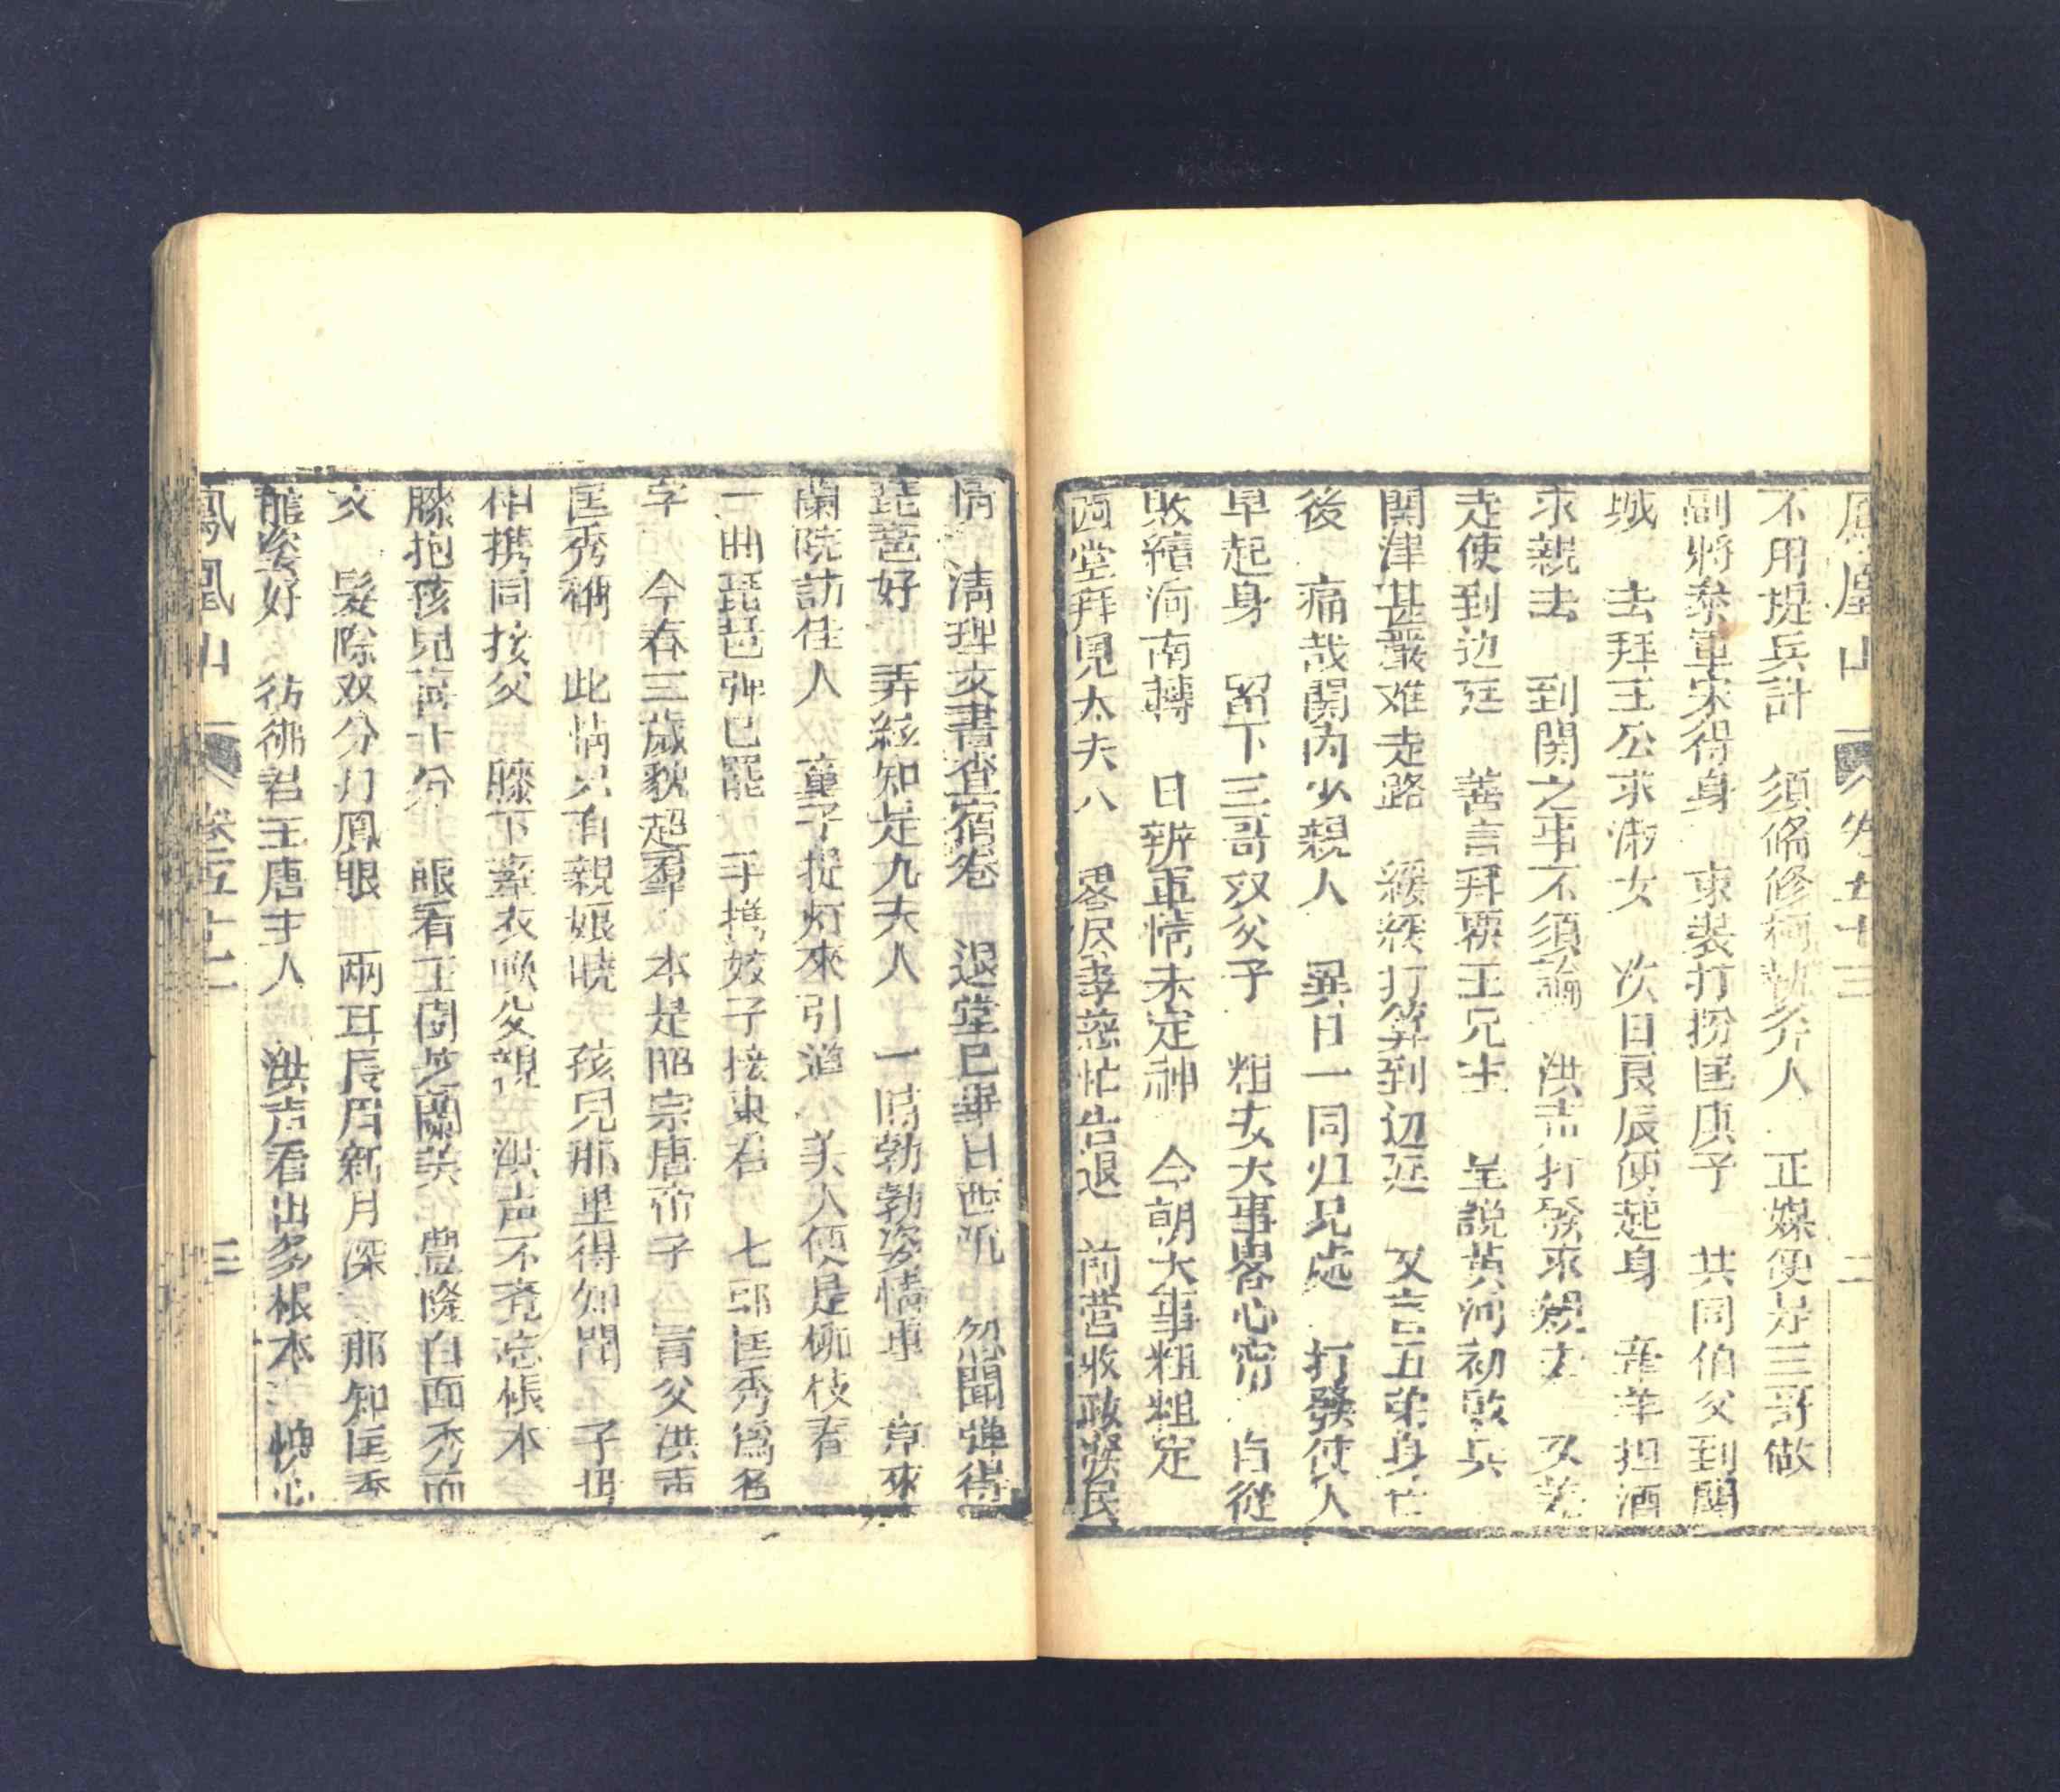 鳳凰山 卷五十三 二
不用提兵計 須俻修柯執斧人 正媒便是三哥做
副將叅軍宋得身 束裝打扮匡庚子 共同伯父到關
城 去拜王公求淑女 次日良辰便起身 牽羊担酒
求親去 到関之事不須論 洪志打發求親去 又差
走使到边廷 善言拜禀王兄生 呈説黃河初敗兵
関津甚嚴难走路 緩緩打算到辺廷 又言五弟身亡
後 痛哉関内少親人 異日一同归兄處 打發使人
早起身 留下三哥双父子 粗安大事畧心寧 自從
敗績河南轉 日辦軍情未定神 今朝大事粗粗定
西堂拜見太夫人 畧尽孝慈忙告退 前营收政發民
情 清理文書查宿卷 退堂已畢日西沉 忽聞彈得
琵琶好 弄絃知是九夫人 一時勃勃姿情專 竟來
蘭院訪佳人 童子提灯來引道 美人便是柳枝春
一曲琵琶弹已罷 手携姣子接東君 七郎匡秀爲名
字 今春三歲貌超羣 本是昭宗唐帝子 冐父洪声
匡秀稱 此情只有親娘曉 孩兒那里得知聞 子母
相携同接父 膝下牽衣喚父親 洪声不覺忘根本
膝抱孩兒喜十分 眼看玉閏芝蘭美 豐隆白面秀而
文 髮際双分丹鳳眼 兩耳長眉新月深 那知匡秀
態姿好 彷彿君王唐主人 洪声看出多根本 愧心
鳳凰山 卷五十三 三